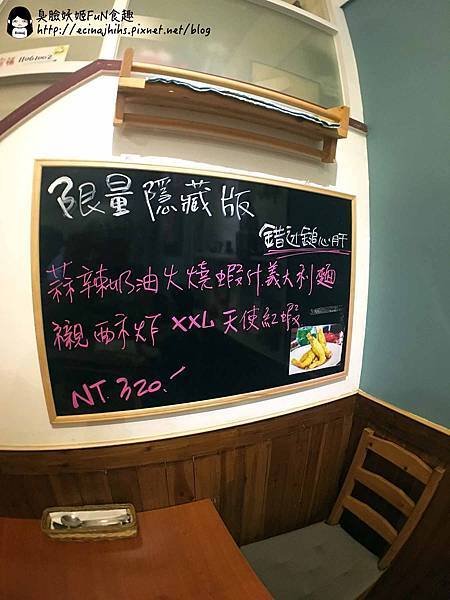 臭臉妖姬FuN食趣
http://ecinajhihs.pixnet.net/blog
限量隱藏版
錯過鎚心肝
蒜辣奶油火燒蝦汁義大利麵
襯酥炸XXL天使紅蝦
NT.320.-